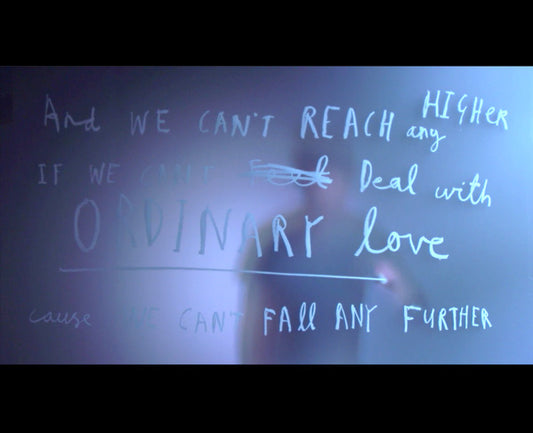 And WE CAN'T REACH any HIGHER
IF WE CAN'T Deal with
ORDINARY love
cause WE CAN'T FAll ANY FURTHER